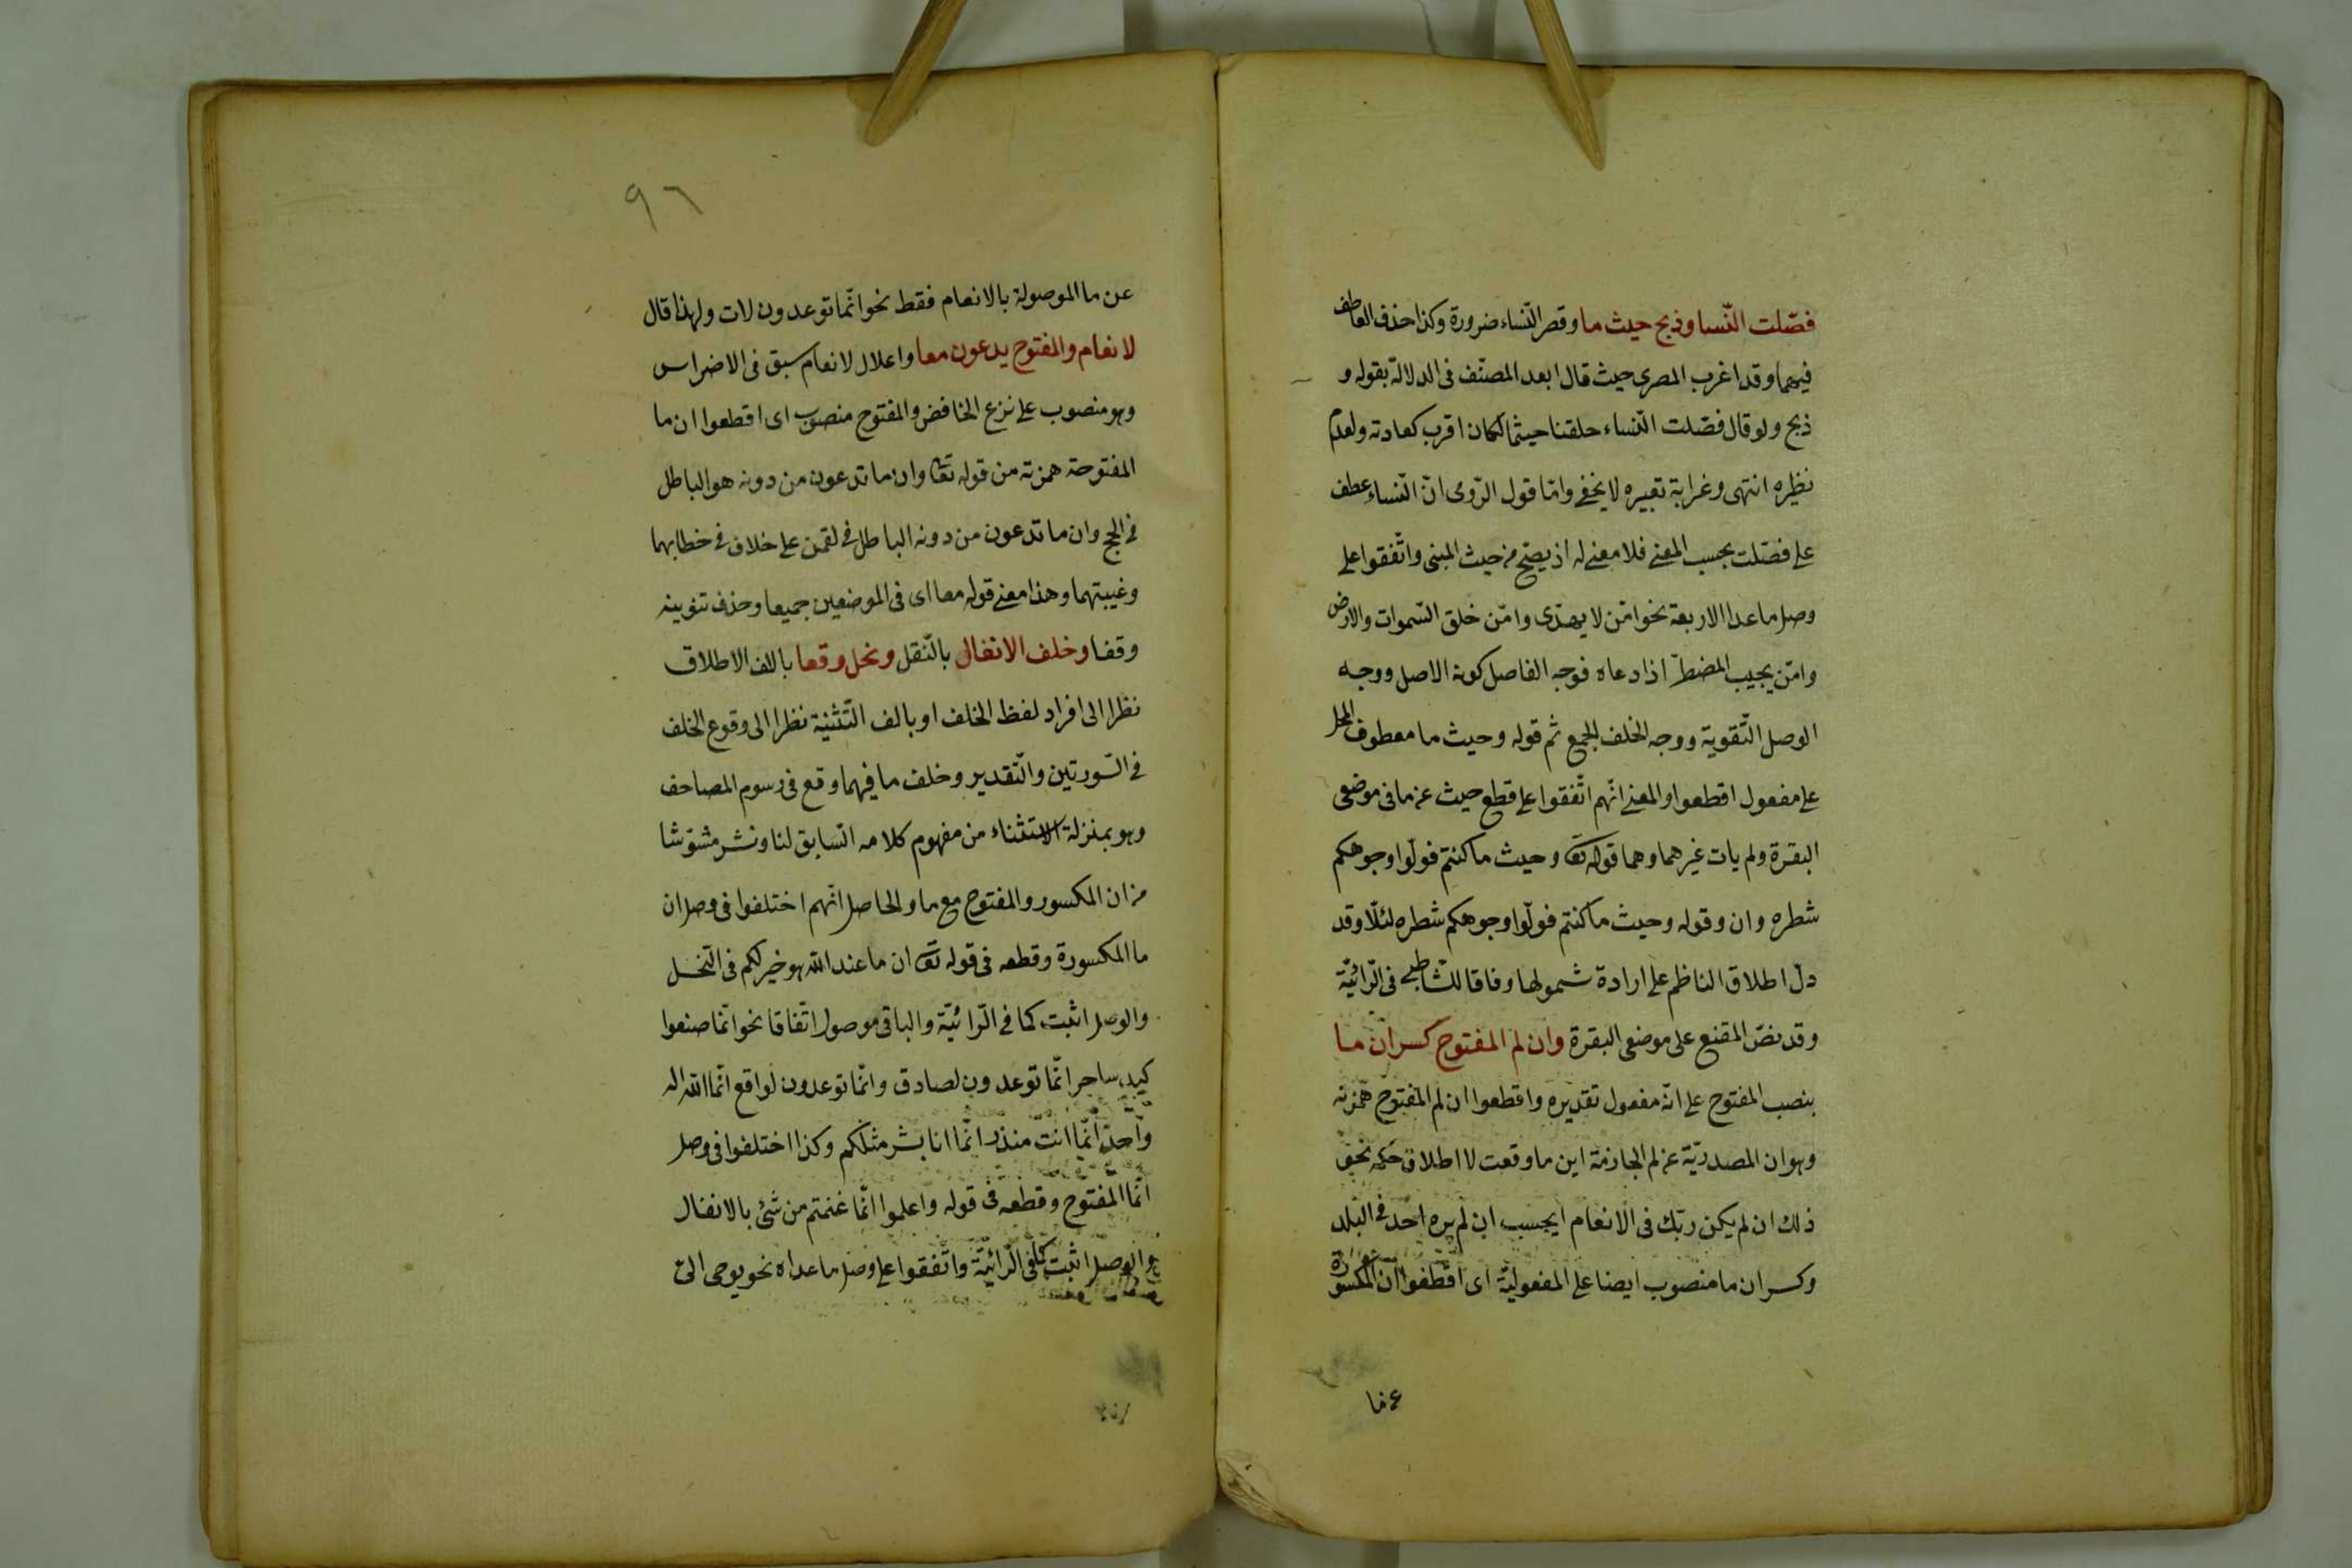 فصّلت النّسا وذبح حيث ما وقصر النّساء ضرورة وكذا حذف العاطف
فيهما وقد اغرب المصرى حيث قال ابعد المصنّف فى الدلالة بقوله و
ذبح ولو قال فصّلت النّساء حلقنا حيثما لكان اقرب كعادته ولعدم
نظيره انتهى وغرابة تعبيره لا يخفى وامّا قول الرّومى انّ النّساء عطف
على فصّلت بحسب المعنى فلا معنى له اذ يصحّ من حيث المبنى واتّفقوا على
وصل ما عدا الاربعة نحو امّن لا يهدّى وامّن خلق السّموات والارض
وامّن يجيب المضطرّ اذا دعاه فوجه الفاصل كونه الاصل ووجه
الوصل التّقوية ووجه الخلف الجمع ثم قوله وحيث ما معطوف المحل
على مفعول اقطعوا والمعنى انّهم اتّفقوا على قطع حيث عن ما فى موضعى
البقرة ولم يات غيرهما وهما قوله تعا وحيث ما كنتم فولّوا وجوهكم
شطره وان وقوله وحيث ما كنتم فولّوا وجوهكم شطره لئلّا وقد
دلّ اطلاق الناظم على ارادة شمولها وفاقا للشّاطبى فى الرّائيّة
وقد نصّ المقنع على موضعى البقرة وان لم المفتوح كسر ان ما
بنصب المفتوح على انّه مفعول تقديره واقطعوا ان لم المفتوح همزته
وهو ان المصدريّة عن لم الجازمة اين ما وقعت لاطلاق حكمه نحو
ذلك ان لم يكن ربّك فى الانعام ايحسب ان لم يره احد فى البلد
وكسر ان ما منصوب ايضا على المفعوليّة اى اقطعوا ان المكسورة
عن ما
٩٦
عن ما الموصولة بالانعام فقط نحو انّما توعدون لات ولهذا قال
لانعام والمفتوح يدعون معا واعلال لانعام سبق فى الاضراس
وهو منصوب على نزع الخافض والمفتوح منصوب اى اقطعوا ان ما
المفتوحة همزته من قوله تعا وان ما تدعون من دونه هو الباطل
فى الحج وان ما تدعون من دونه الباطل فى لقمن على خلاف فى خطابهما
وغيبتهما وهذا معنى قوله معا اى فى الموضعين جميعا وحذف تنوينه
وقفا وخلف الانفال بالنّقل ونحل وقعا بالف الاطلاق
نظرا الى افراد لفظ الخلف او بالف التّثنية نظرا الى وقوع الخلف
فى السّورتين والتّقدير وخلف ما فيهما وقع فى رسوم المصاحف
وهو بمنزلة الاستثناء من مفهوم كلامه السّابق لنا ونشر مشوّشا
من ان المكسور والمفتوح مع ما والحاصل انّهم اختلفوا فى وصل ان
ما المكسورة وقطعه فى قوله تعا ان ما عند الله هو خير لكم فى النّحل
والوصل اثبت كما فى الرّائيّة والباقى موصول اتّفاقا نحو انّما صنعوا
كيد ساحر انّما توعدون لصادق وانّما توعدون لواقع انّما الله اله
واحد انّما انت منذر انّما انا بشر مثلكم وكذا اختلفوا فى وصل
انّما المفتوح وقطعه فى قوله واعلموا انّما غنمتم من شئ بالانفال
والوصل اثبت كما فى الرّائيّة واتّفقوا على وصل ما عداه نحو يوحى الىّ